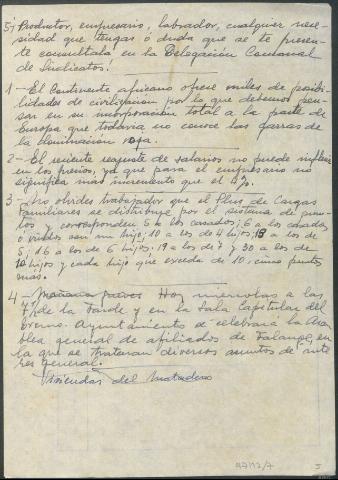 5-) Productor, empresario, labrador, cualquier nece-
sidad que tengas ó duda que se te presen-
te consultala en la Delegación Comarcal
de Sindicatos!
1 - El Continente africano ofrece miles de posibi-
lidades de civilizacion por lo que debemos pen-
sar en su incorporacion total a la parte de
Europa que todavia no conoce las garras de
la dominacion roja.
2 - El reciente reajuste de salarios no puede influir
en los precios, ya que para el empresario no
significa mas incremento que el 4%.
3 - No olvides trabajador que el Plus de Cargas
Familiares se distribuye por el sistema de pun-
tos y corresponden 5 a los casados; 6 a los casados
ó viudos con un hijo; 10 a los de 4 hijos; 13 a los de
5; 16 a los de 6 hijos; 19 a los de 7 y 30 a los de
10 hijos y cada hijo que exceda de 10, cinco puntos
mas.
4 - Mañana jueves Hoy miercoles a las
7½ de la tarde y en la Sala Capitular del
Excmo. Ayuntamiento se celebrará la Asam
blea general de afiliados de Falange, en
la que se trataran diversos asuntos de inte
res general.
Viviendas del Matadero
5